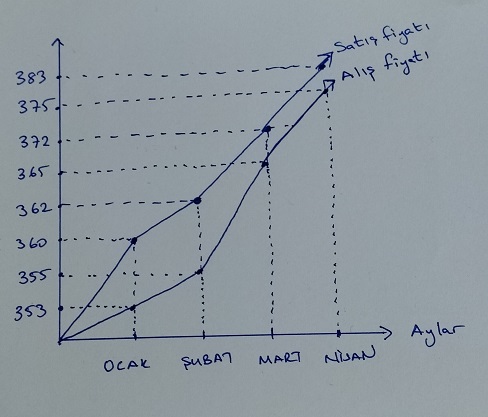 Satış fiyatı
Alış fiyatı
383
375
372
365
362
360
355
353
Aylar
OCAK ŞUBAT MART NİSAN